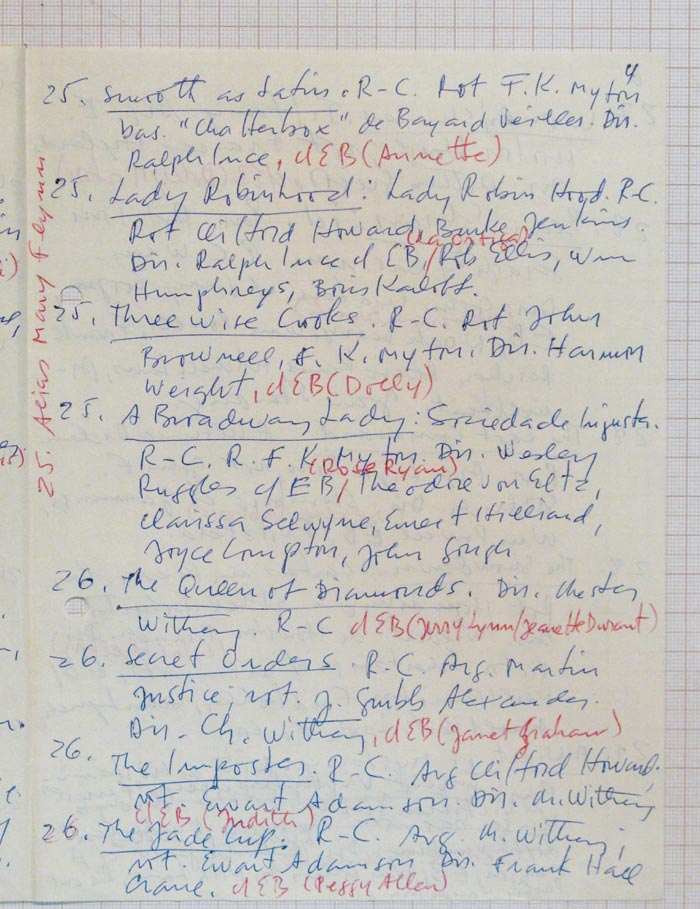 4
25. Smooth as Satin. R-C. Rot F. K. Myton
bas. "Chatterbox" de Bayard Veiller. Dir.
Ralph Ince, c/ EB (Annette)
25. Alias Mary Flynn
25. Lady Robinhood: Lady Robin Hood. R-C.
Rot Clifford Howard, Burke Jenkins.
Dir. Ralph Ince c/ EB/(La Ortiga) Rob Ellis, Wm
Humphreys, Boris Karloff.
25. Three Wise Crooks. R-C. Rot John
Brownell, F. K. Myton. Dir. Harmon
Weight, c/ EB (Dolly)
25. A Broadway Lady: Sociedade Injusta.
R-C. R. F. K. Myton. Dir. Wesley
Ruggles c/ EB/(Rose Ryan) Theodore von Eltz,
Clarissa Selwyne, Ernest Hilliard,
Joyce Compton, John Gough
26. The Queen of Diamonds. Dir. Chester
Withey. R-C c/ EB (Jerry Lynn/Jeanette Durant)
26. Secret Orders R-C. Arg. Martin
Justice; rot. J. Grubb Alexander.
Dir. Ch. Withey, c/ EB (Janet Graham)
26. The Imposter. R-C. Arg Clifford Howard,
rot. Ewart Adamson. Dir. Ch. Withey
c/ EB (Judith)
26. The Jade Cup. R-C. Arg. Ch. Withey;
rot. Ewart Adamson Dir. Frank Hall
Crane. c/ EB (Peggy Allen)